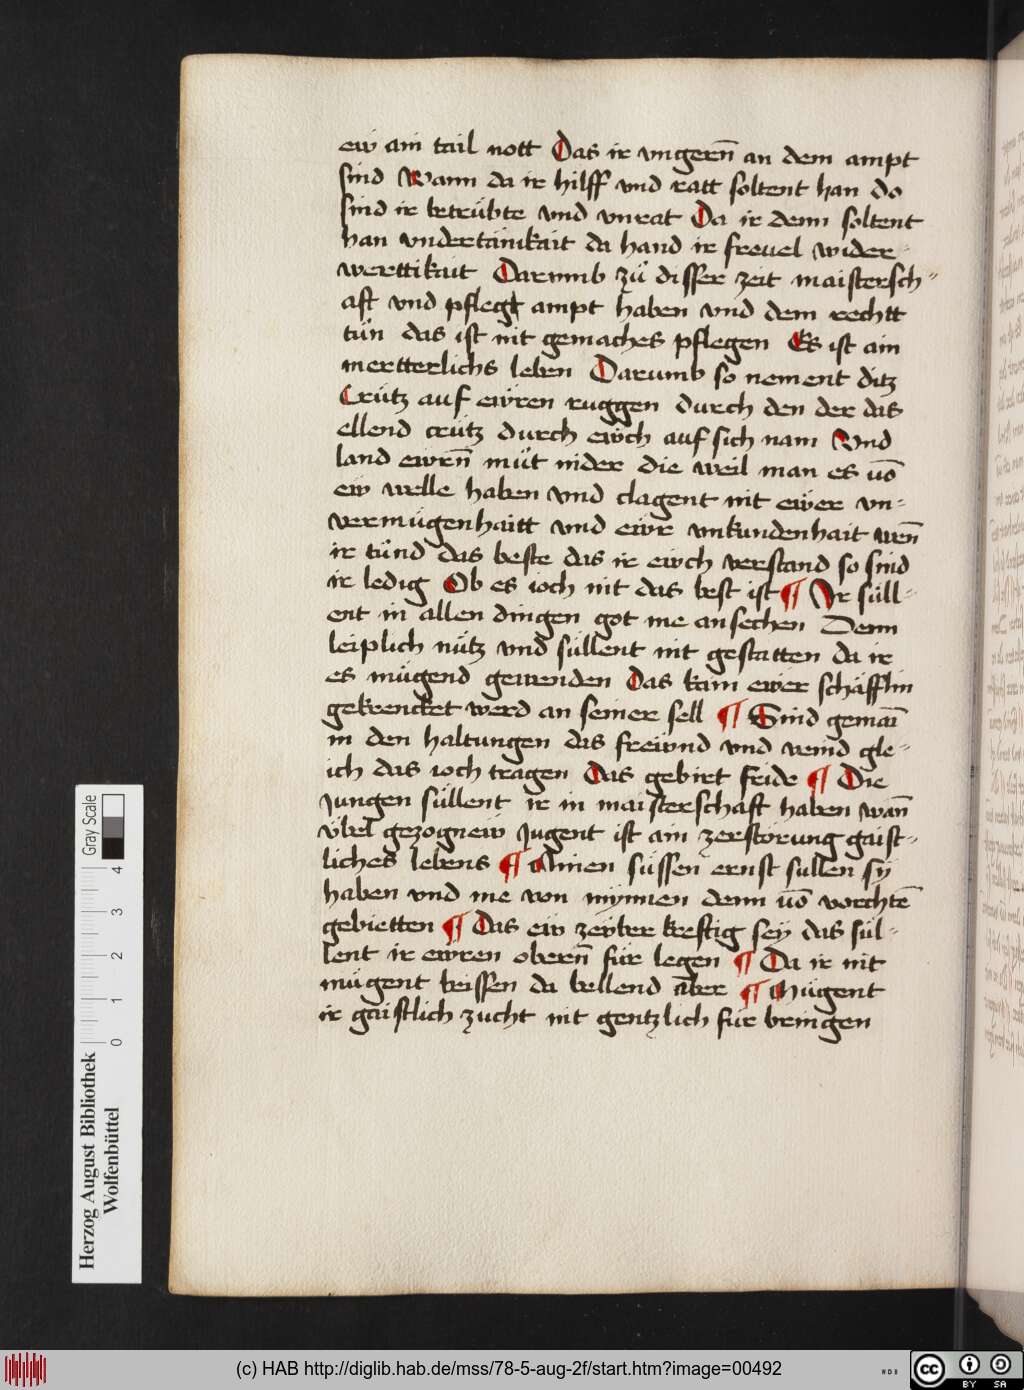 ew ain tail nott Das ir vngern̄ an dem ampt
sind Wann da ir hilff vnd ratt soltent han do
sind ir betrübte vnd vnrat Da ir denn soltent
han vndertänikait da hand ir freuel wider-
werttikait Darumb zů disser zeit maistersch-
aft vnd pflegt ampt haben vnd dem rechtt
tůn das ist nit gemaches pflegen Es ist ain
mertterlichs leben Darumb so nement ditz
Crütz auf ewren ruggen durch den der das
ellend crütz durch ewch auf sich nam Vnd
land ewrn̄ můt nider die weil man es uō
ew welle haben vnd clagent nit ewer vn-
vermügenhaitt vnd ewr vnkundenhait wen̄
ir tůnd das beste das ir ewch verstand so sind
ir ledig Ob es ioch nit das best ist ¶ Ir süll-
ent in allen dingen got me an sechen Denn
leiplich nütz vnd süllent nit gestatten da ir
es mügend gewenden Das kain ewer schäfflin
gekrencket werd an seiner sell ¶ Sind gemaī
in den haltungen das frewnd vnd veind gle-
ich das ioch tragen Das gebirt fride ¶ Die
Jungen süllent ir in maisterschaft haben wan̄
vbel gezognew Jugent ist ain zerstörung gaist-
liches lebens ¶ Ainen süssen ernst sullen sy
haben vnd me von mynnen denn uō vorchtē
gebietten ¶ Das ew zeyber kreftig sey das sül-
lent ir ewren obern̄ für legen ¶ Da ir nit
mügent beissen da bellend aber ¶ Mügent
ir gaistlich zucht nit gentzlich für bringen
Gray Scale
0 1 2 3 4
Herzog August Bibliothek
Wolfenbüttel
(c) HAB http://diglib.hab.de/mss/78-5-aug-2f/start.htm?image=00492
WDB
cc BY SA